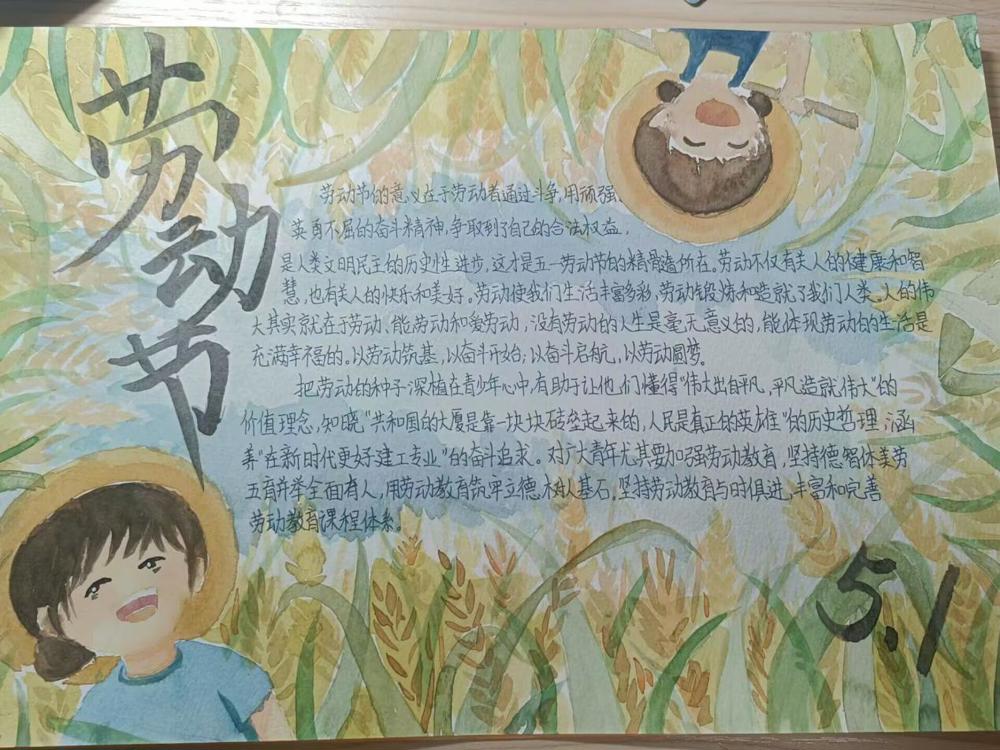 劳动节
劳动节的意义在于劳动者通过斗争,用顽强、
英勇不屈的奋斗精神,争取到了自己的合法权益,
是人类文明民主的历史性进步,这才是五一劳动节的精髓所在。劳动不仅有关人的健康和智
慧,也有关人的快乐和美好。劳动使我们生活丰富多彩,劳动锻炼和造就了我们人类。人的伟
大其实就在于劳动、能劳动和爱劳动,没有劳动的人生是毫无意义的,能体现劳动的生活是
充满幸福的。以劳动筑基,以奋斗开始;以奋斗启航,以劳动圆梦。
把劳动的种子深植在青少年心中,有助于让他们懂得“伟大出自平凡,平凡造就伟大”的
价值理念,知晓“共和国的大厦是靠一块块砖垒起来的,人民是真正的英雄”的历史哲理,涵
养“在新时代更好建工专业”的奋斗追求。对广大青年尤其要加强劳动教育,坚持德智体美劳
五育并举全面育人,用劳动教育筑牢立德树人基石,坚持劳动教育与时俱进,丰富和完善
劳动教育课程体系。
5.1